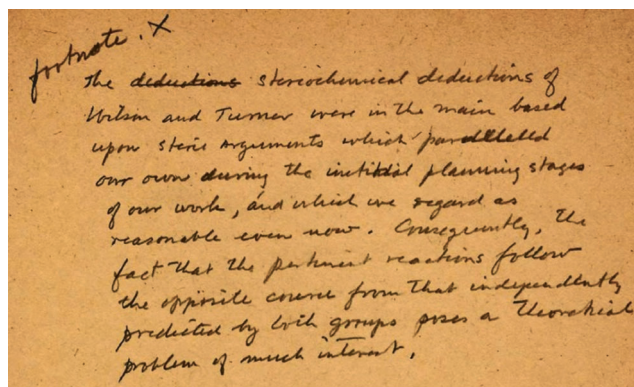 footnote. X
The deductions stereochemical deductions of
Wilson and Turner were in the main based
upon steric arguments which parallelled
our own during the initial planning stages
of our work, and which we regard as
reasonable even now. Consequently, the
fact that the pertinent reactions follow
the opposite course from that independently
predicted by both groups poses a theoretical
problem of much interest.